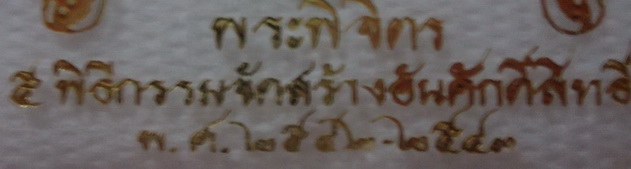 พระพิจิตร
๕ พิธีกรรมจัดสร้างอันศักดิ์สิทธิ์
พ.ศ.๒๕๔๒-๒๕๔๓